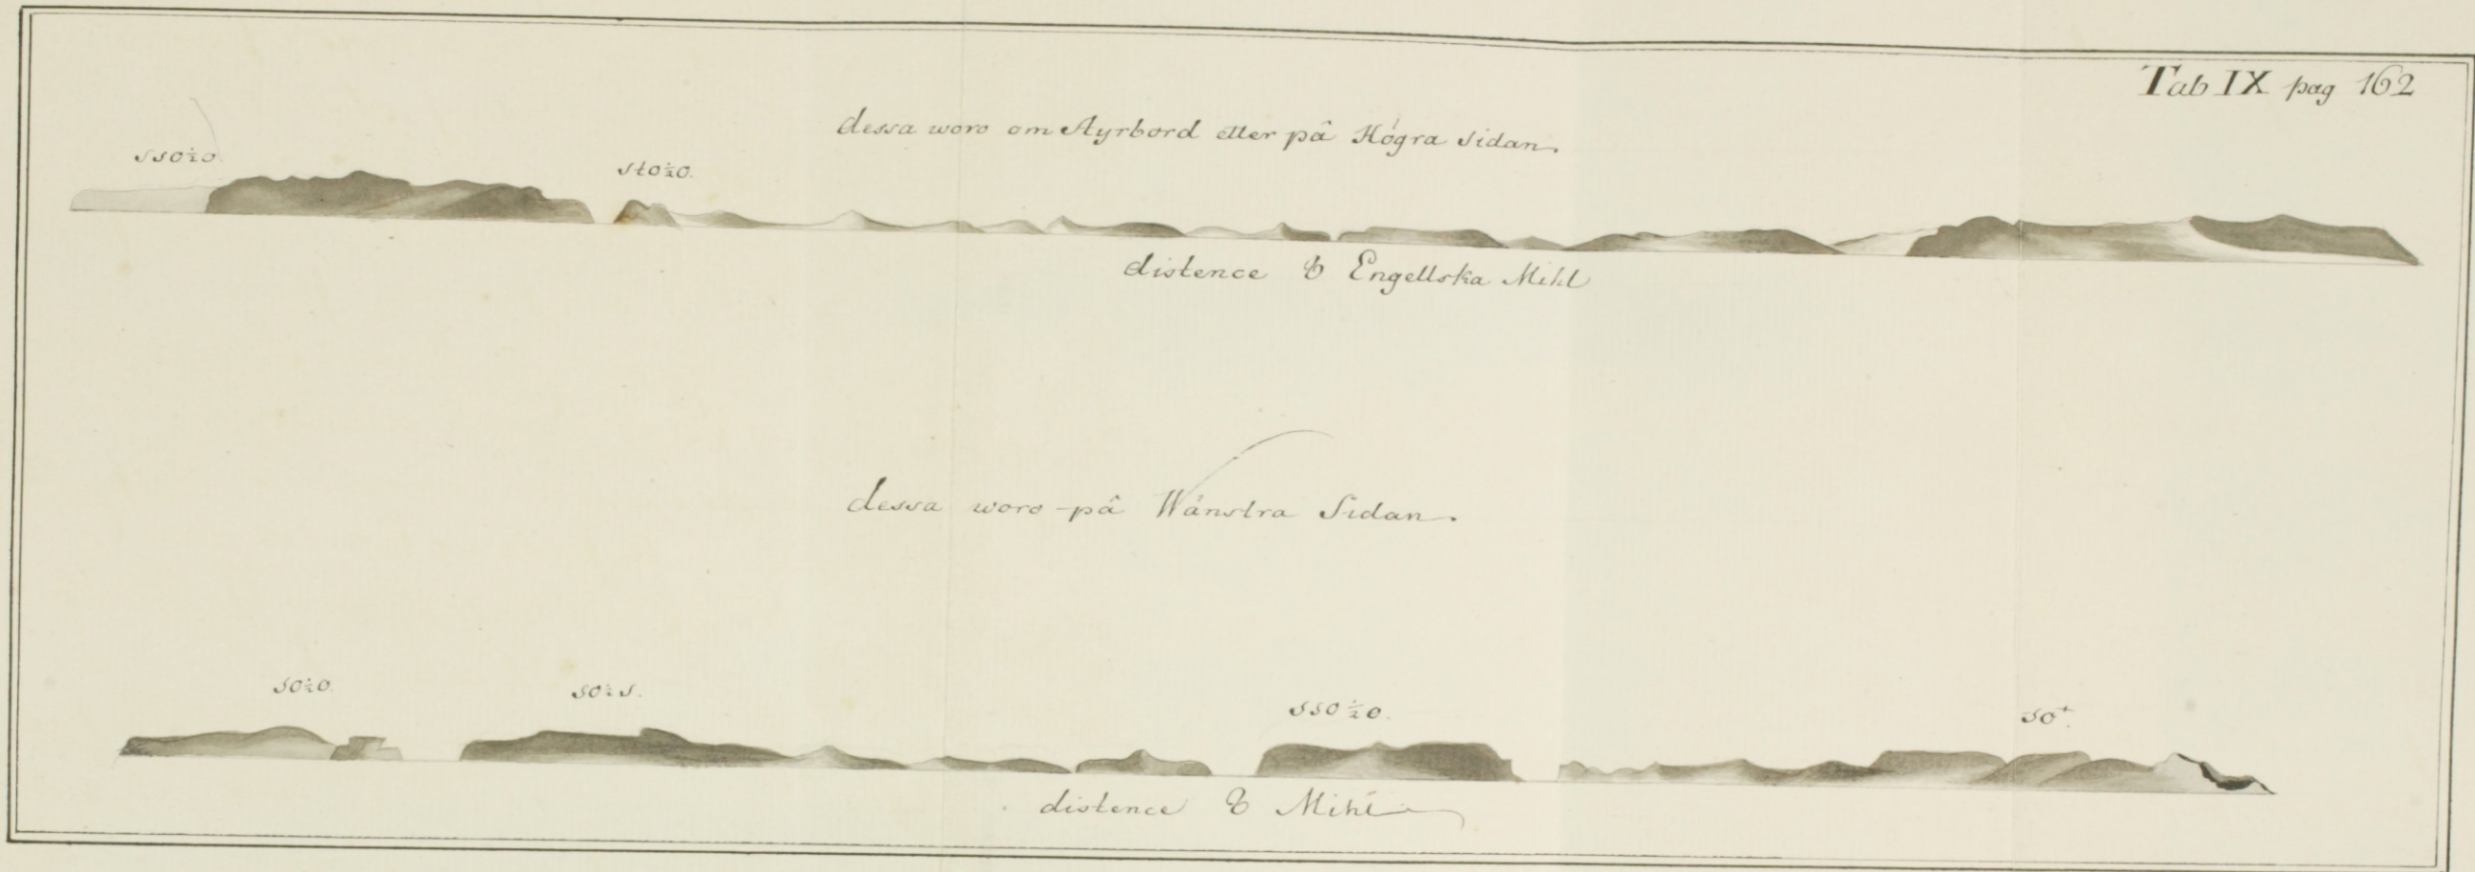 Tab IX pag 162
dessa woro om Styrbord eller på Högra Sidan.
SSO½O.
StO½O.
distence 8 Engellska Mihl
dessa woro på Wänstra Sidan.
SO½O.
SO½S.
SSO½O.
SO⁺.
distence 8 Mihl